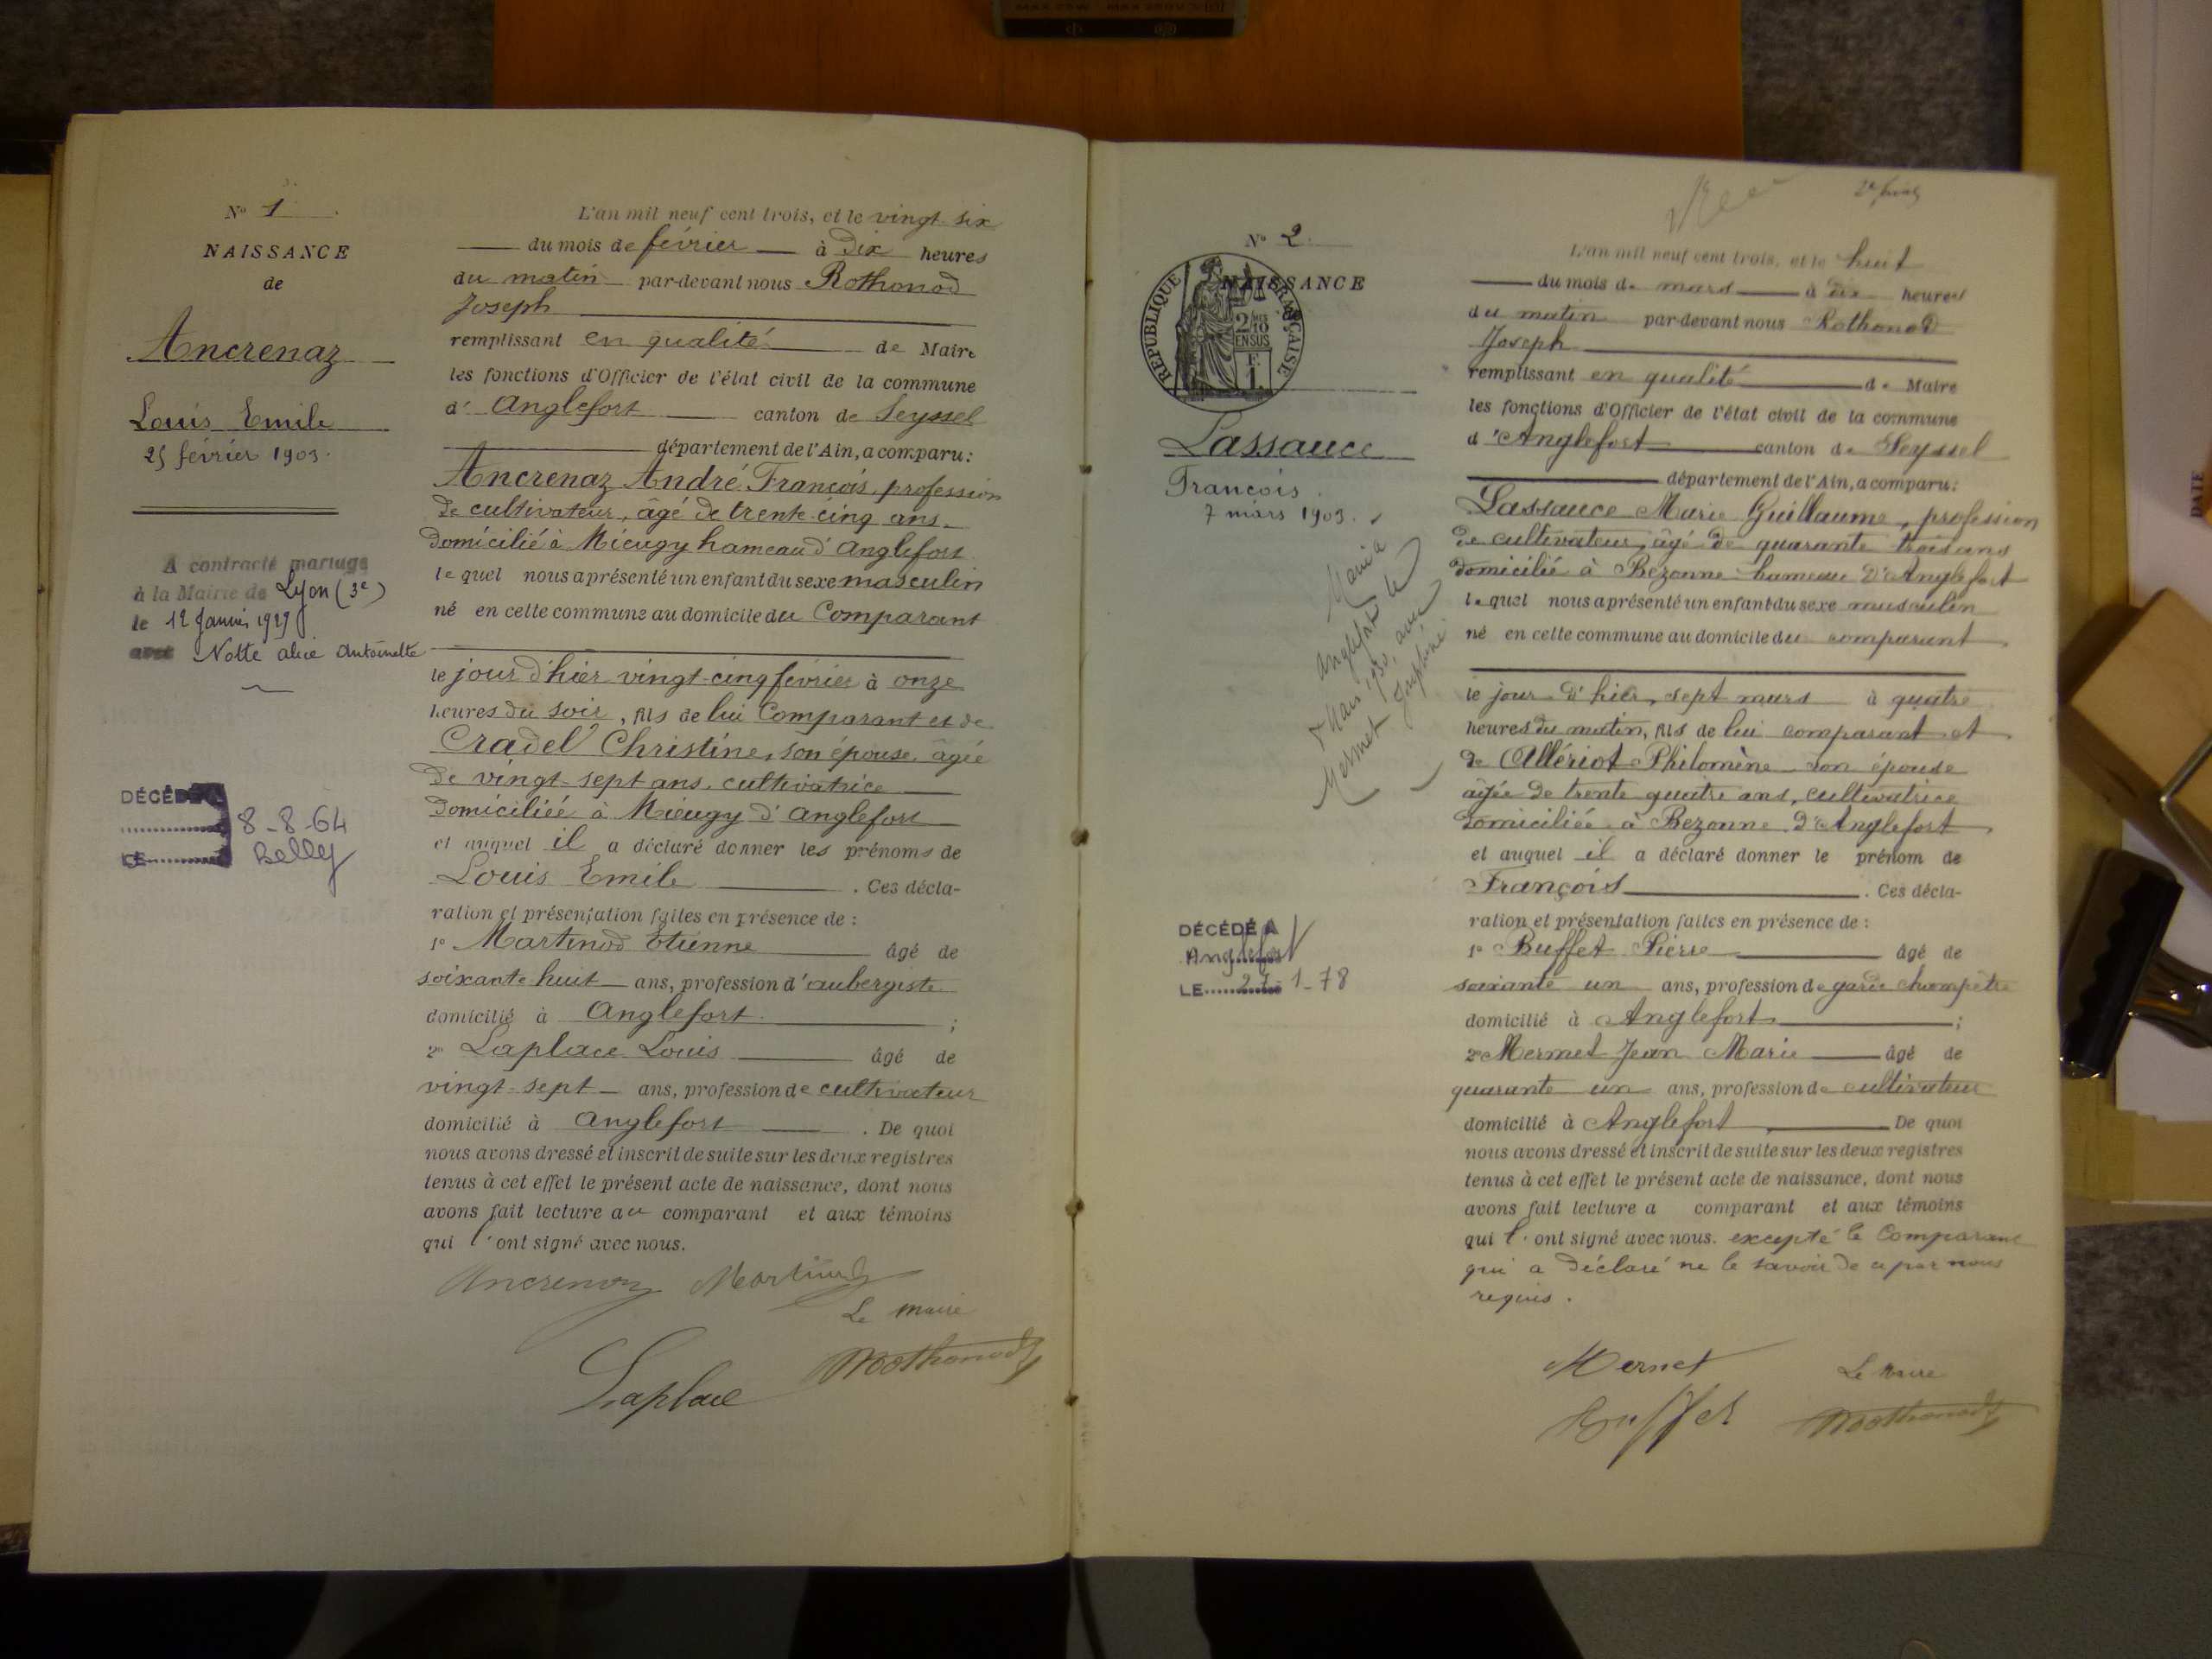 N° 1
NAISSANCE
de
Ancrenaz
Louis Emile
25 février 1903.
A contracté mariage
à la Mairie de Lyon (3e)
le 12 Janvier 1929
avec Notte Alice Antoinette
DÉCÉDÉ A
8-8-64
LE
Belley
L'an mil neuf cent trois, et le vingt-six
du mois de février à dix heures
du matin par-devant nous Rothonod
Joseph
remplissant en qualité de Maire
les fonctions d'Officier de l'état civil de la commune
d' Anglefort canton de Seyssel
département de l'Ain, a comparu:
Ancrenaz André François, profession
de cultivateur, âgé de trente-cinq ans
domicilié à Mieugy hameau d'Anglefort
le quel nous a présenté un enfant du sexe masculin
né en cette commune au domicile du Comparant
le jour d'hier vingt-cinq février à onze
heures du soir, fils de lui Comparant et de
Cradel Christine, son épouse, âgée
de vingt-sept ans, cultivatrice
domiciliée à Mieugy d'Anglefort
et auquel il a déclaré donner les prénoms de
Louis Emile . Ces décla-
ration et présentation faites en présence de :
1° Martinod Etienne âgé de
soixante huit ans, profession d'aubergiste
domicilié à Anglefort ;
2° Laplace Louis âgé de
vingt-sept ans, profession de cultivateur
domicilié à Anglefort . De quoi
nous avons dressé et inscrit de suite sur les deux registres
tenus à cet effet le présent acte de naissance, dont nous
avons fait lecture au comparant et aux témoins
qui l'ont signé avec nous.
Ancrenaz Martinod
Le maire
Laplace Rothonod
2e
N° 2
NAISSANCE
REPUBLIQUE FRANÇAISE
2/10
EN SUS
F.
1.
Lassauce
François
7 mars 1903.
Marié à
Anglefort le
Mars 1930, avec
Mermet Joséphine
DÉCÉDÉ A
Anglefort
LE 27-1-78
L'an mil neuf cent trois, et le huit
du mois de mars à dix heures
du matin par-devant nous Rothonod
Joseph
remplissant en qualité de Maire
les fonctions d'Officier de l'état civil de la commune
d'Anglefort canton de Seyssel
département de l'Ain, a comparu:
Lassauce Marie Guillaume, profession
de cultivateur, âgé de quarante trois ans
domicilié à Bezonne hameau d'Anglefort
le quel nous a présenté un enfant du sexe masculin
né en cette commune au domicile du comparant
le jour d'hier, sept mars à quatre
heures du matin, fils de lui comparant et
de Allériot Philomène son épouse
âgée de trente quatre ans, cultivatrice
domiciliée à Bezonne d'Anglefort
et auquel il a déclaré donner le prénom de
François . Ces décla-
ration et présentation faites en présence de :
1° Buffet Pierre âgé de
soixante un ans, profession de garde champêtre
domicilié à Anglefort ;
2° Mermet Jean Marie âgé de
quarante un ans, profession de cultivateur
domicilié à Anglefort De quoi
nous avons dressé et inscrit de suite sur les deux registres
tenus à cet effet le présent acte de naissance, dont nous
avons fait lecture a comparant et aux témoins
qui l'ont signé avec nous. excepté le Comparant
qui a déclaré ne le savoir de ce par nous
requis.
Mermet Le Maire
Buffet Rothonod
DATE